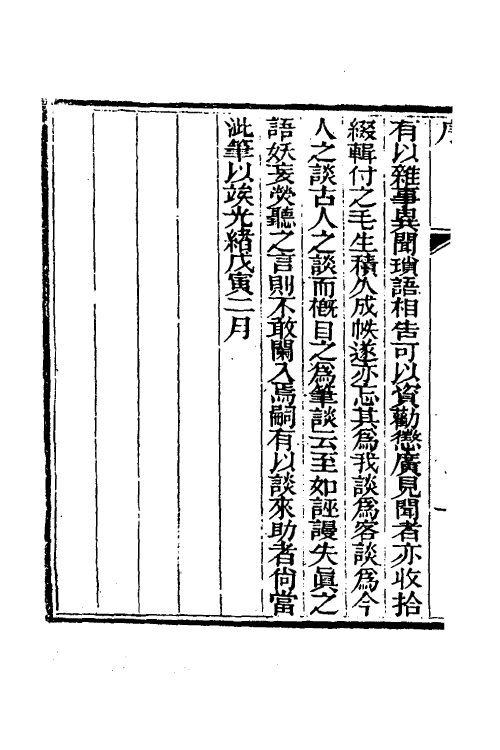 有以雜事異聞瑣語相告可以資勸懲廣見聞者亦收拾
綴輯付之毛生積久成帙遂亦忘其爲我談爲客談爲今
人之談古人之談而槪目之爲筆談云至如誣謾失眞之
語妖妄熒聽之言則不敢闌入焉嗣有以談來助者尙當
泚筆以竢光緖戊寅二月